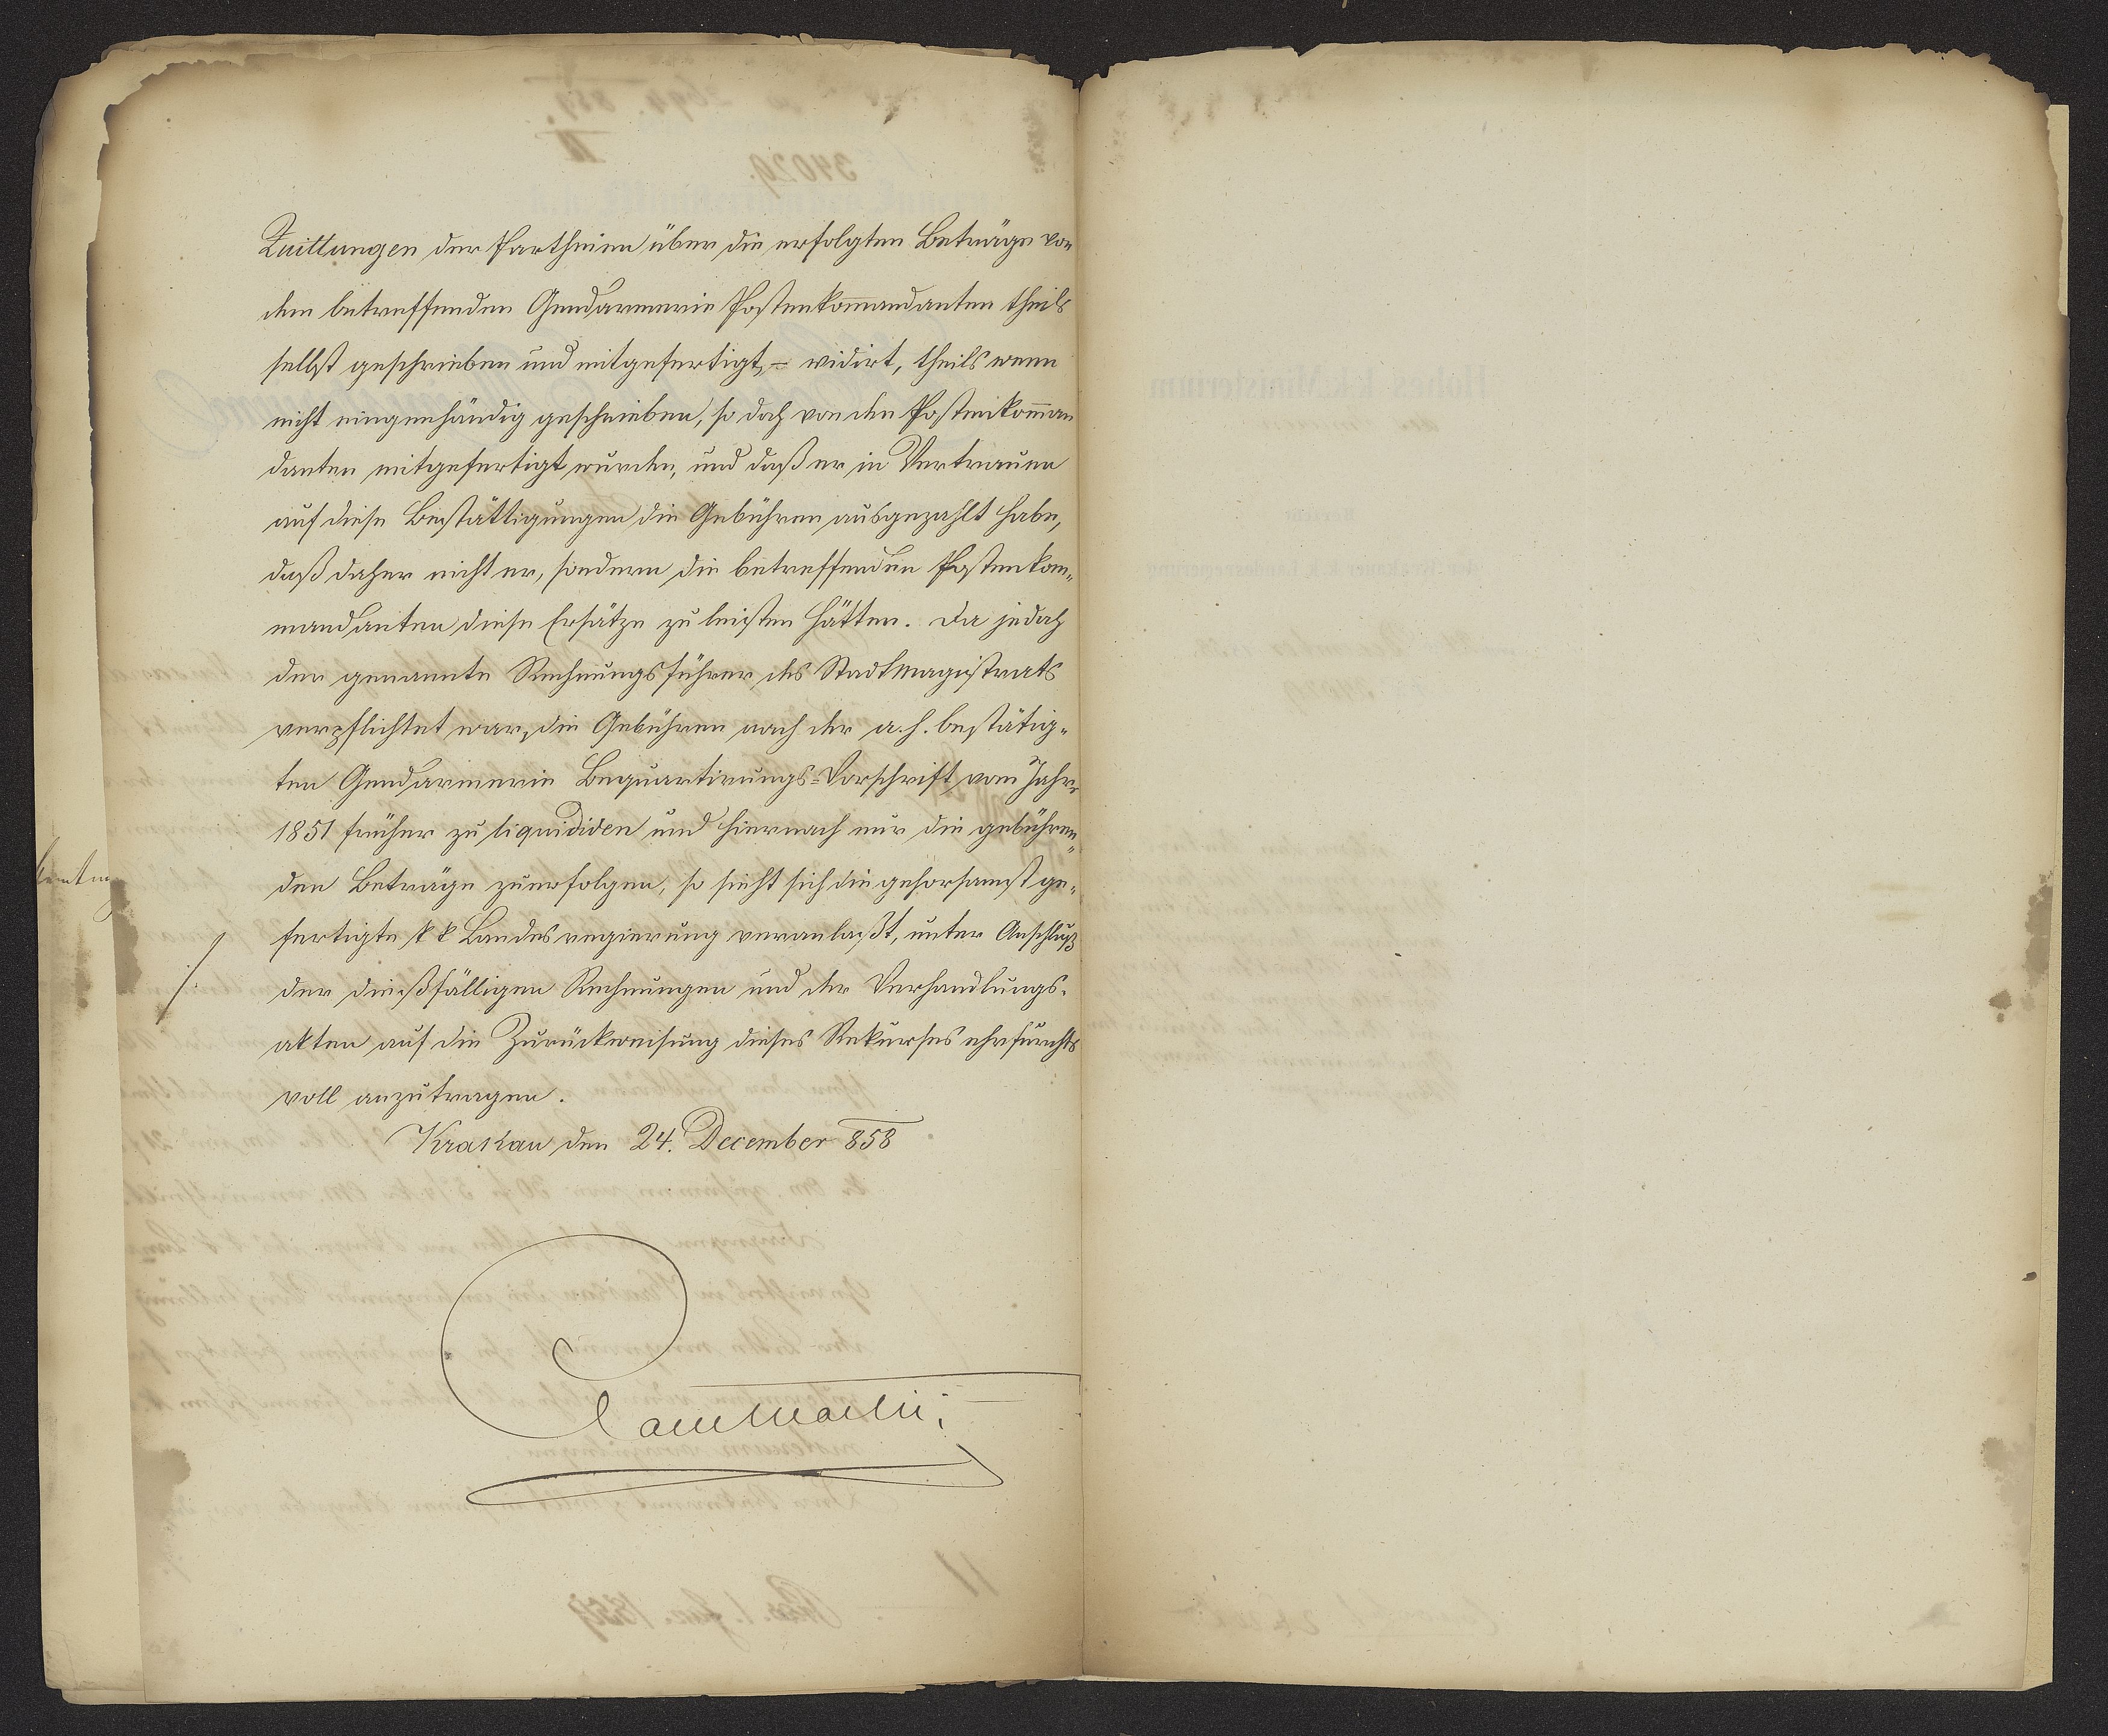 Quittungen der Partheien über die erfolgten Beträge von
dem betreffenden Gendarmerie Postenkom̅andanten theils
selbst geschrieben und mitgefertigt, – vidirt, theils wenn
nicht eingenhändig geschrieben, so doch von den Postenkom̅an
danten mitgefertigt wurden, und daß er in Vertrauen
auf diese Bestättigungen die Gebühren ausgezahlt habe,
daß daher nicht er, sondern die betreffenden Postenkom„
mandanten diese Ersätze zu leisten hätten. Da jedoch
der genannte Rechnungsführer des Stadtmagistrats
verpflichtet war, die Gebühren nach der a. h. bestätig„
ten Gendarmerie Bequartirungs=Vorschrift vom Jahre
1851 früher zu liquididen und hiernach nur die gebühren„
den Beträge zuerfolgen, so sieht sich die gehorsamst ge„
fertigte k k Landesregierung veranlaßt, unter Anschluß
der dießfälligen Rechnungen und der Verhandlungs„
akten auf die Zurückweisung dieses Rekurses ehrfurchts
voll anzutragen.
Krakau den 24. December 858